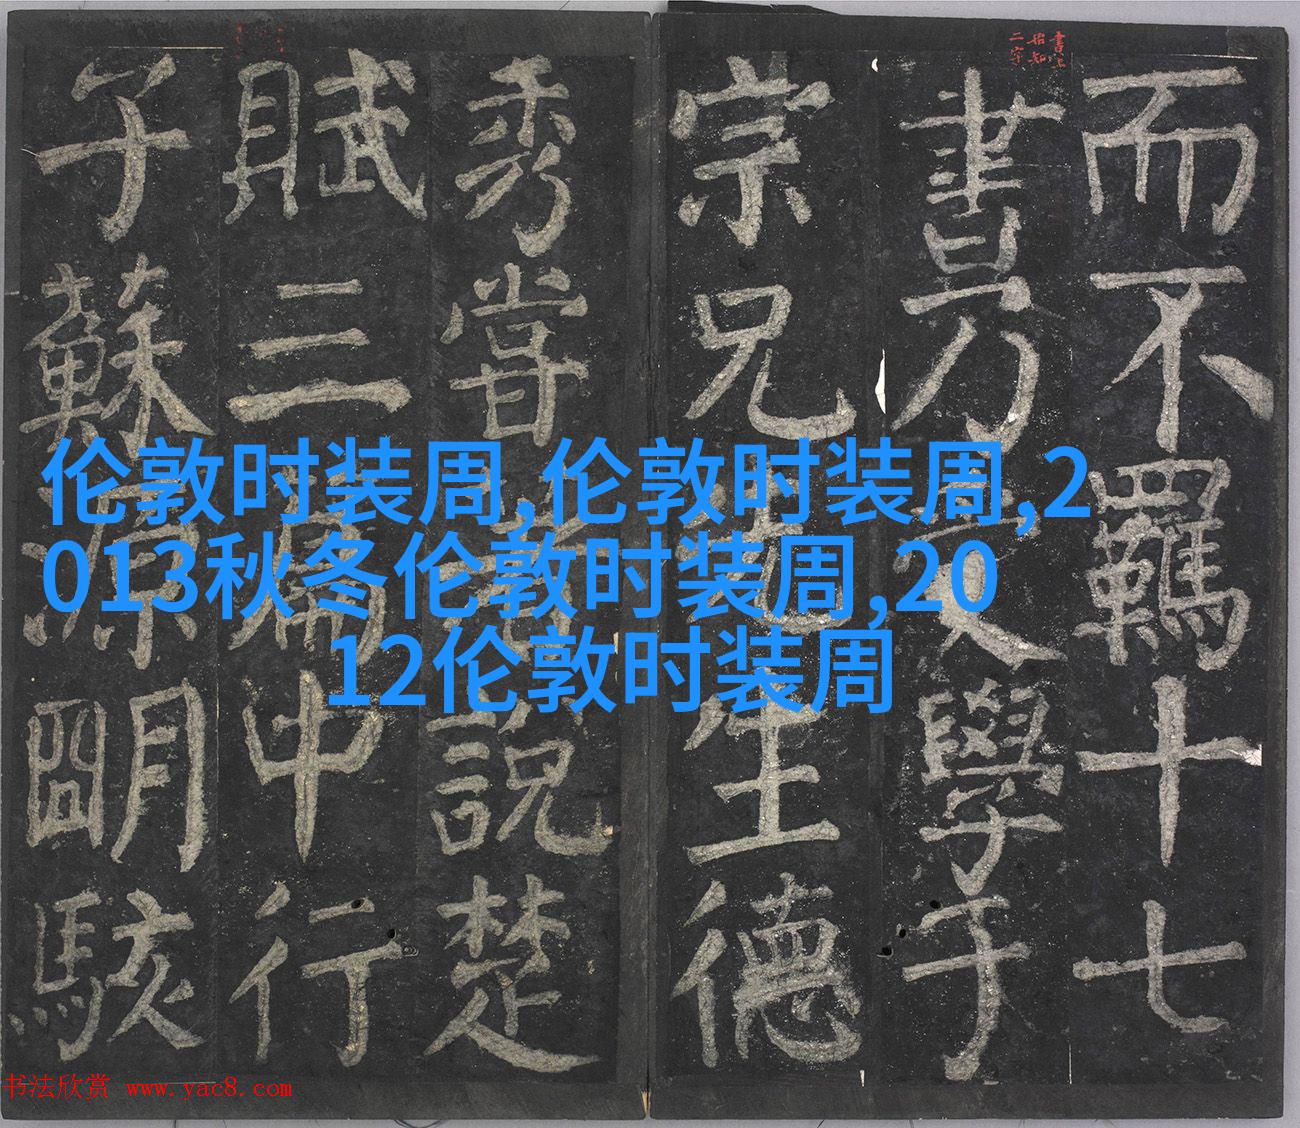 書上
始知
二字
而不羈十七
書乃學于
宗兄生德
秀嘗說楚
賦三篇中行
子蘇源明駭
伦敦时装周,伦敦时装周,2
013秋冬伦敦时装周,20
12伦敦时装周
书法欣赏 www.yac8.com